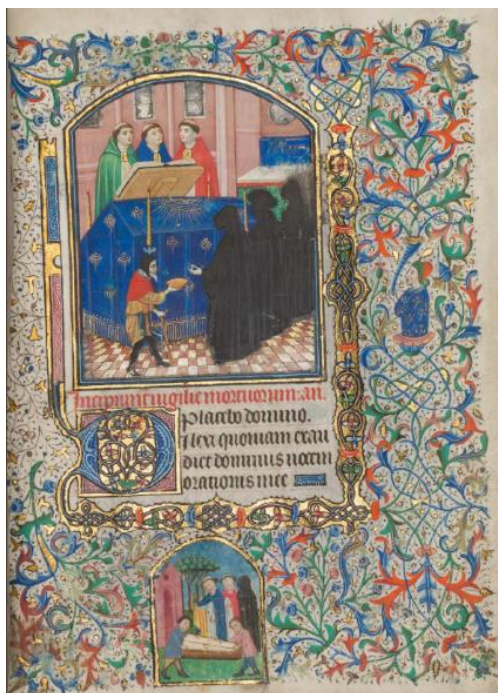 Incipiunt vigilie mortuorum. an.
Placebo domino.
Dilexi quoniam exau
diet dominus uocem
orationis mee